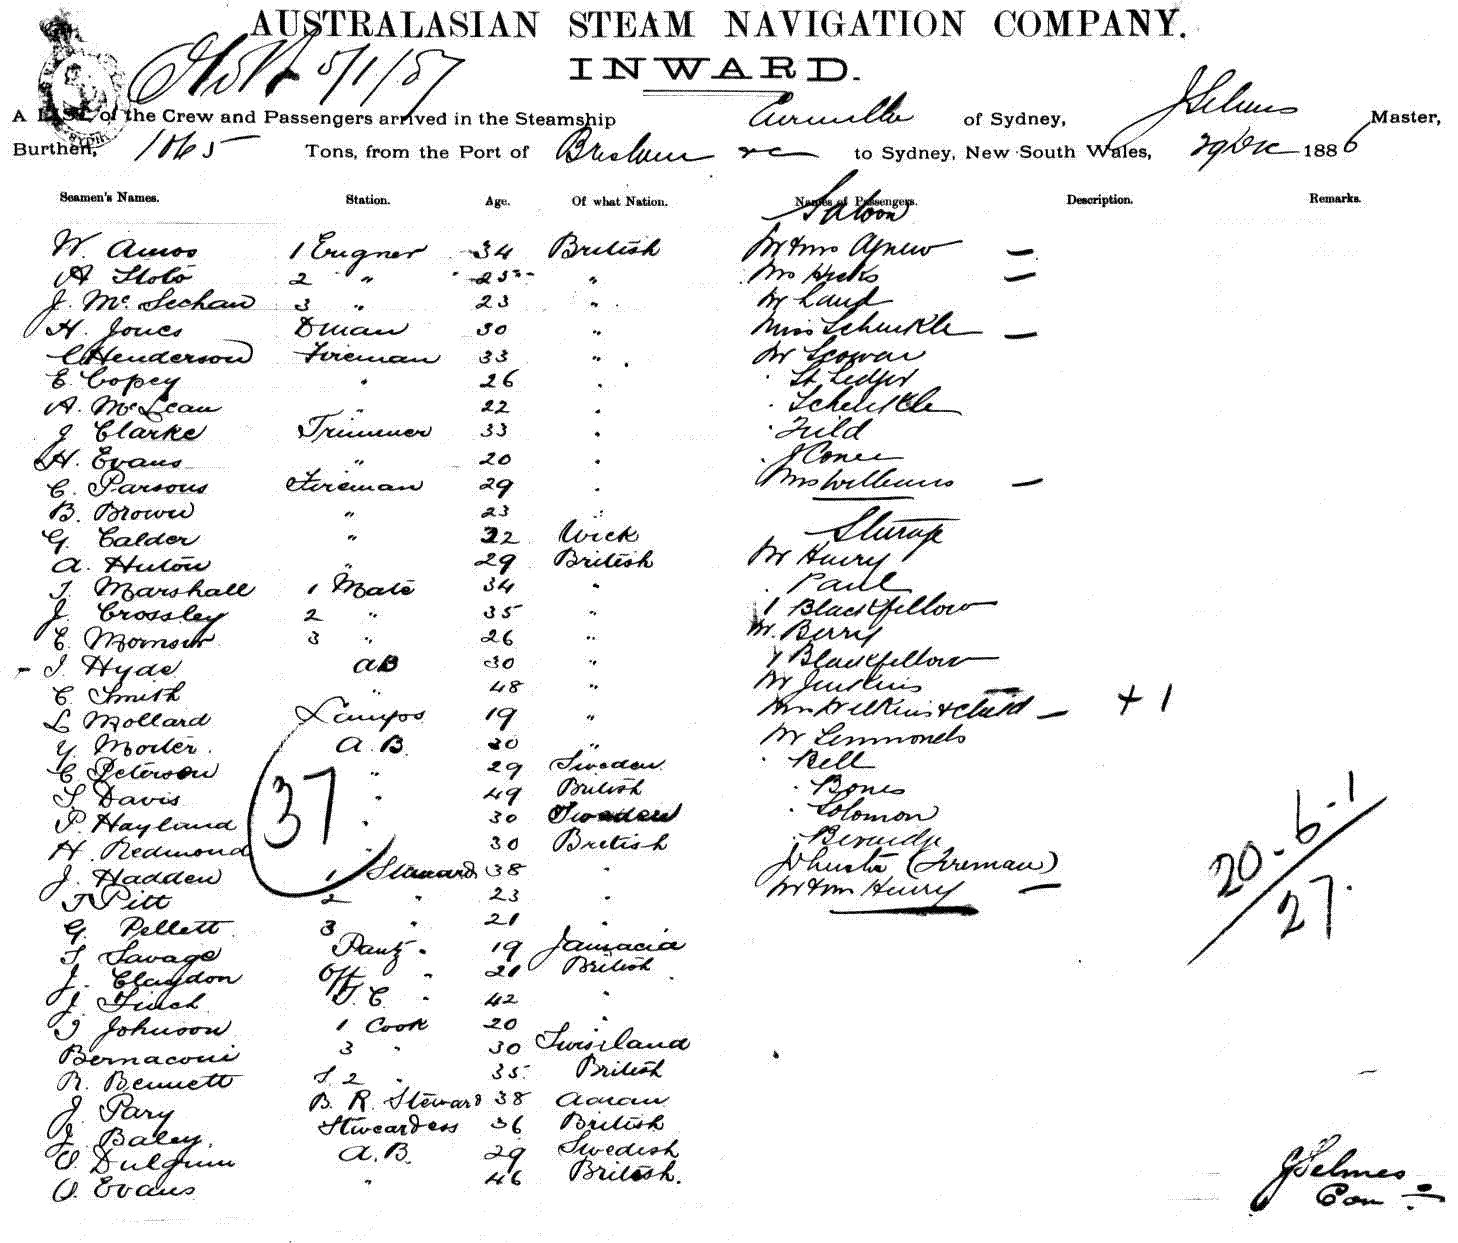 AUSTRALASIAN STEAM NAVIGATION COMPANY.
5/1/87
INWARD.
A LIST of the Crew and Passengers arrived in the Steamship of Sydney, J Selmes Master,
Burthen, 1065 Tons, from the Port of Brisbane &c to Sydney, New South Wales, 29 Dec 1886
Seamen's Names. Station. Age. Of what Nation. Names of Passengers. Description. Remarks.
Saloon
W. Amos 1 Engner 34 British Mr & Mrs Agnew —
A 2 " 25 " Mrs Hicks —
J. McSechan 3 " 23 " Mr Land
H. Jones Dman 30 " Miss Schenkle —
C Henderson Fireman 33 " Mr
E. Copey " 26 " St Ledger
A. McLean " 22 " Schenkle
J Clarke Trimmer 33 " Field
H. Evans " 20 " J
C. Parsons Fireman 29 " Mrs Williams —
B. Brown " 23 "
Steerage
G. Calder " 22 Wick
A. Huton " 29 British Mr Henry
T. Marshall 1 Mate 34 " Paul
J. Crossley 2 " 35 " 1 Blackfellow
E. 3 " 26 " Mr. Berry
J. Hyde AB 30 " 1 Blackfellow
C. Smith " 48 " Mr Jenkins
L Mollard Lamps 19 " Mrs Wilkins & Child — + 1
Y. Morter. A.B. 30 " Mr Lemmonds
C Peterson " 29 Sweden " Bell
S Davis " 49 British " Bones
P. Hayland " 30 Sweden " Solomon
H. Redmond " 30 British "
37
J. Hadden 1 Steward 38 " J (Fireman)
T Pitt 2 " 23 " Mr & Mrs Henry —
20-6-1
27.
G. Pellett 3 " 21 "
T Savage Pantry " 19 Jamacia
J. Claydon Off " 21 British
J. Finch T. C. " 42 "
J Johnson 1 Cook 20 "
Bernaconi 3 " 30 Swisiland
R. Bennett S. 2 " 35 British
J. Pary B. R. Steward 38
J. Baley. Stweardess 36 British
O. A.B. 29 Swedish
O. Evans " 46 British.
J Selmes
Com